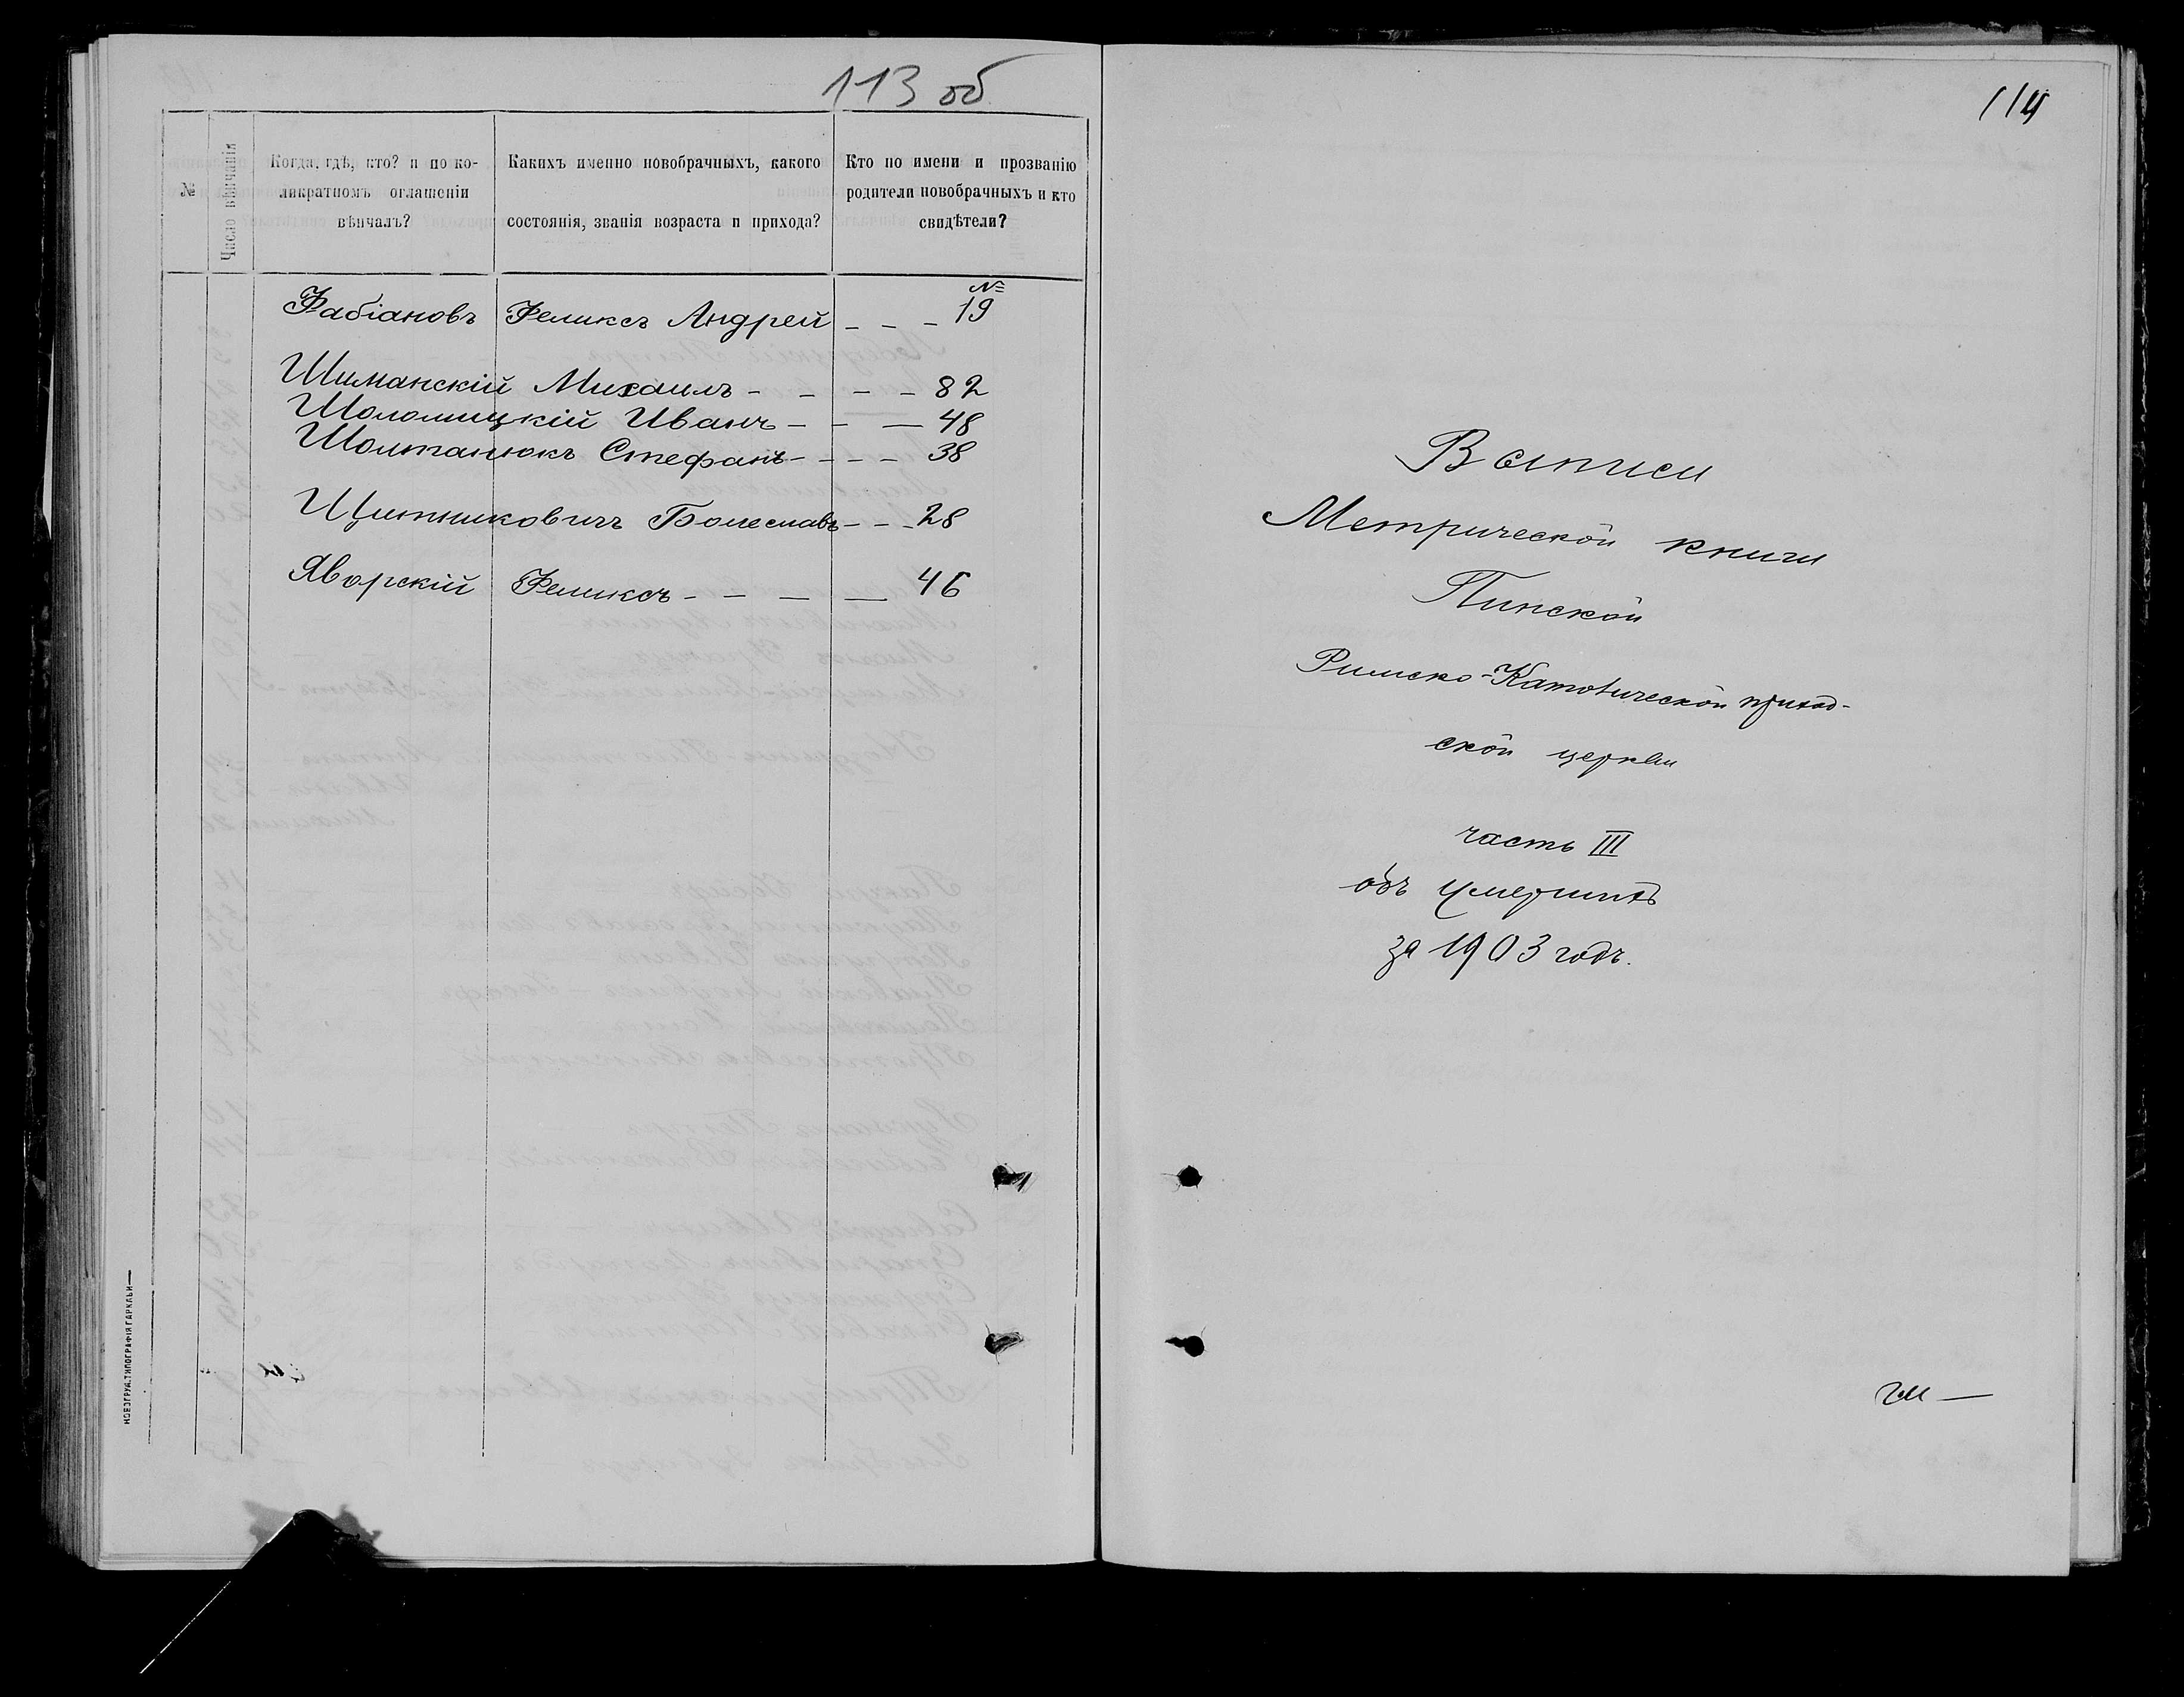 113 об
№
Число вѣнчанія
Когда, гдѣ, кто? и по ко-
ликратномъ оглашеніи
вѣнчалъ?
Какихъ именно новобрачныхъ, какого
состоянія, званія возраста и прихода?
Кто по имени и прозванію
родители новобрачныхъ и кто
свидѣтели?
№
Фабіановъ Феликсъ Андрей - - - 19
Шиманскій Михаилъ - - - - 82
Шоломицкій Иванъ - - — 48
Шолтанюкъ Стефанъ - - - - 38
Щитниковичъ Болеславъ - - - 28
Яворскій Феликсъ - - — — 46
114
Метрической книги
Пинской
Римско-Католической приход-
ской церкви
часть III
объ умершихъ
за 1903 годъ.